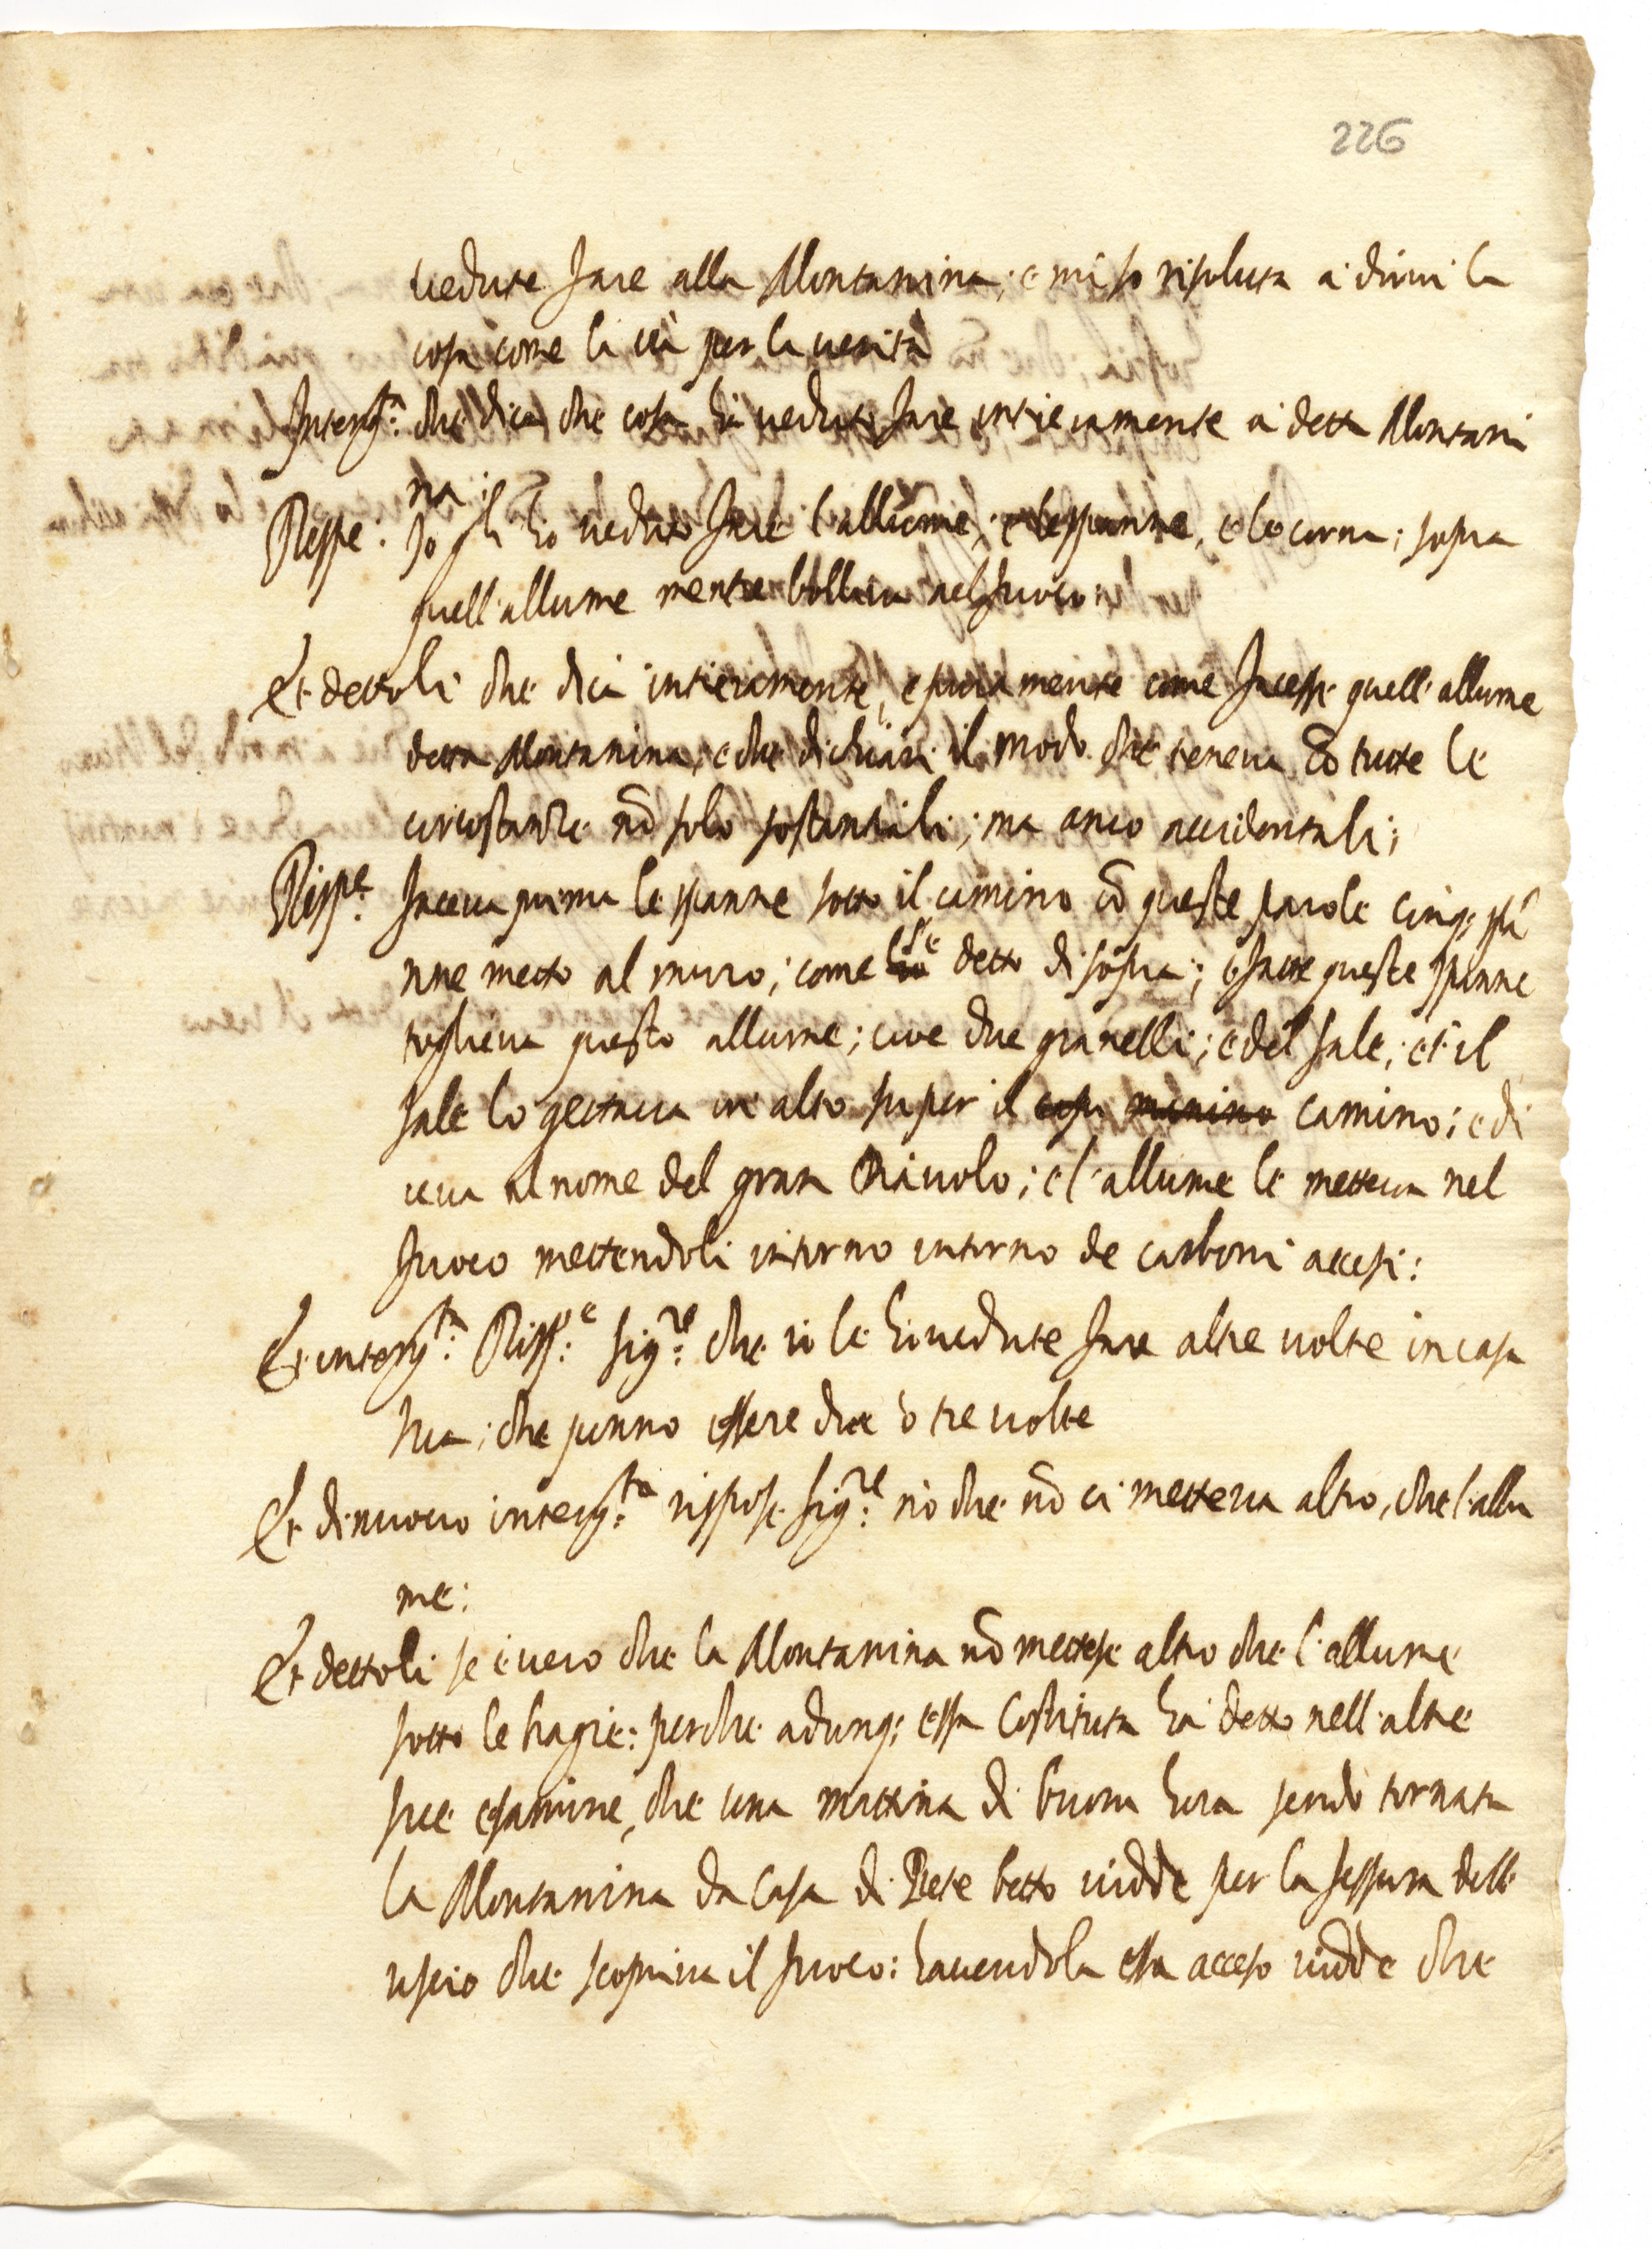 226
vedute fare alla Montanina; e mi so risoluta a dirvi la
cosa come la và per la verità
Interg.ta che dica che cosa hà veduto fare intieramente a detta Montani
na:
Rispe: Jo gli hò veduto fare l'allume, e lespanne, e le corna; sopra
quell'allume mentre bolliva nel fuoco:
Et dettoli che dica intieramente, e puramente come facesse quell'allume
detta Montanina; e che dichiari il modo che teneva cō tutte le
circostanze nō solo sostantiali; ma anco accidentali;
Risp.e faceva prima le spanne sotto il camino cō queste parole cinq; spā
nne metto al muro; come s'è detto di sopra; e fatte queste spanne
toglieva questo allume; cioe due granelli; e del sale; et il
sale lo gettava in alto su per il camino; e di
ceva al nome del gran Diavolo; e l'allume le metteva nel
fuoco mettendoli intorno intorno de carboni accesi:
Et interg.ta Risp.e sig.re che io le hò vedute fare altre volte in casa
sua; che ponno essere due ò tre volte
Et di nuovo interg.ta rispose sig.re nò che nō ci metteva altro, che l'allu
me:
Et dettoli se è vero che la Montanina nō mettese altro che l'allume
sotto le bragie: perche adunq; essa Costituta hà detto nell'altre
sue esamine, che una mattina di buona hora sendo tornata
la Montanina da casa di Bete betto vidde per la fessura dell'
uscio che scopriva il fuoco: havendola essa acceso vidde che